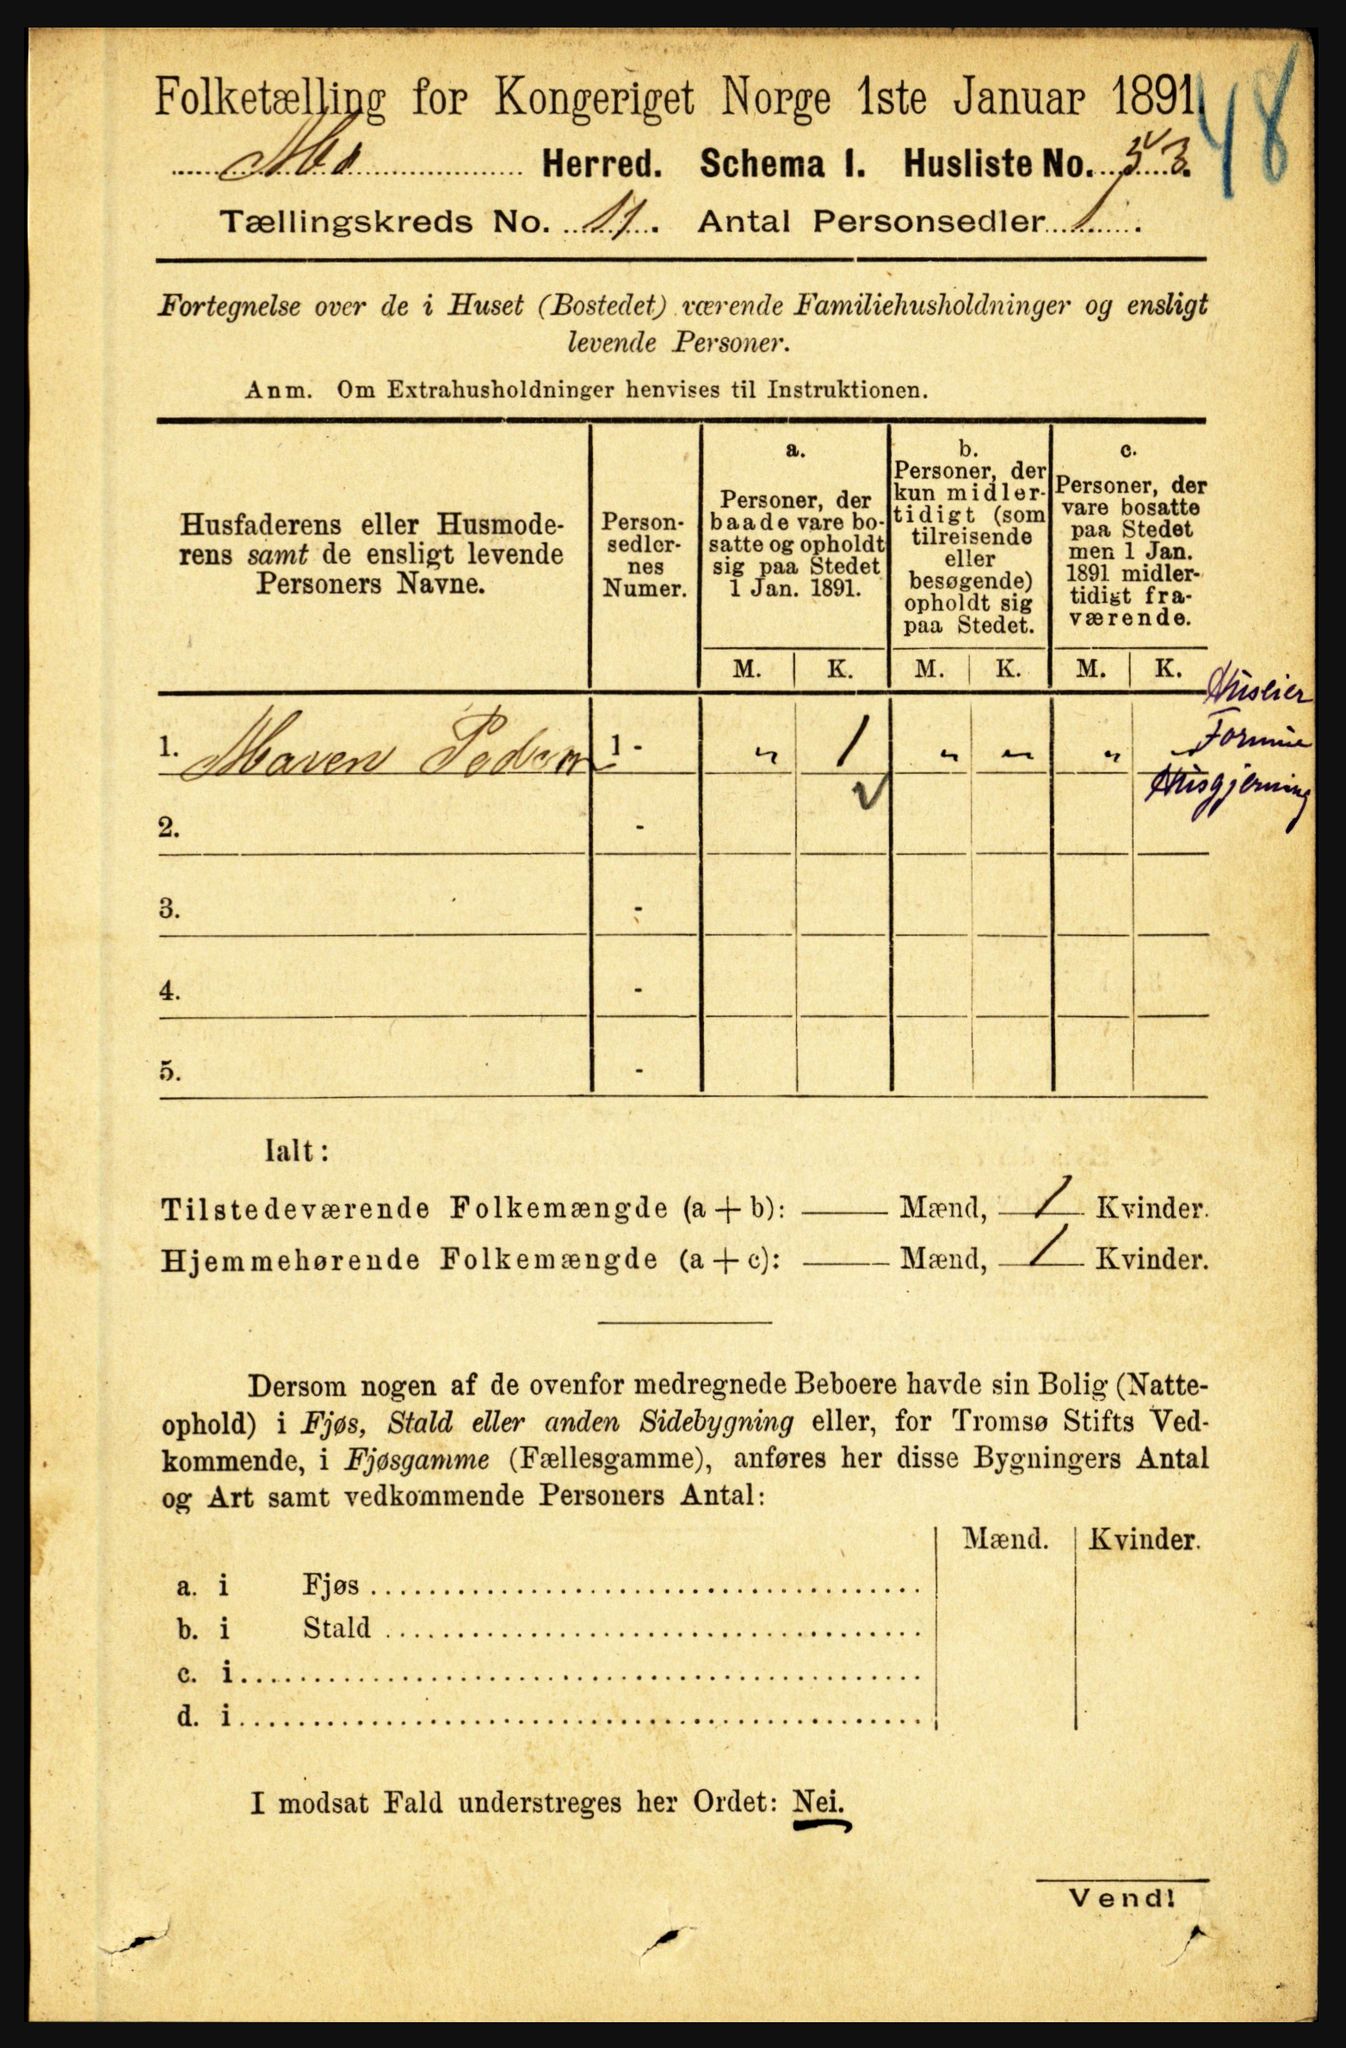 Folketælling for Kongeriget Norge 1ste Januar 1891.
48
Mo Herred. Schema I. Husliste No. 53.
Tællingskreds No. 11. Antal Personsedler 1.
Fortegnelse over de i Huset (Bostedet) værende Familiehusholdninger og ensligt
levende Personer.
Anm. Om Extrahusholdninger henvises til Instruktionen.
Husfaderens eller Husmode-
rens samt de ensligt levende
Personers Navne.
Person-
sedler-
nes
Numer.
a.
Personer, der
baade vare bo-
satte og opholdt
sig paa Stedet
1 Jan. 1891.
b.
Personer, der
kun midler-
tidigt (som
tilreisende
eller
besøgende)
opholdt sig
paa Stedet.
c.
Personer, der
vare bosatte
paa Stedet
men 1 Jan.
1891 midler-
tidigt fra-
værende.
M. K. M. K. M. K.
Huseier
Formue
Husgjerning
1. Maren 1 - " 1 " " " "
2. -
3. -
4. -
5. -
Ialt:
Tilstedeværende Folkemængde (a + b): — Mænd, 1 Kvinder.
Hjemmehørende Folkemængde (a + c): — Mænd, 1 Kvinder.
Dersom nogen af de ovenfor medregnede Beboere havde sin Bolig (Natte-
ophold) i Fjøs, Stald eller anden Sidebygning eller, for Tromsø Stifts Ved-
kommende, i Fjøsgamme (Fællesgamme), anføres her disse Bygningers Antal
og Art samt vedkommende Personers Antal:
Mænd. Kvinder.
a. i Fjøs
b. i Stald
c. i
d. i
I modsat Fald understreges her Ordet: Nei.
Vend!